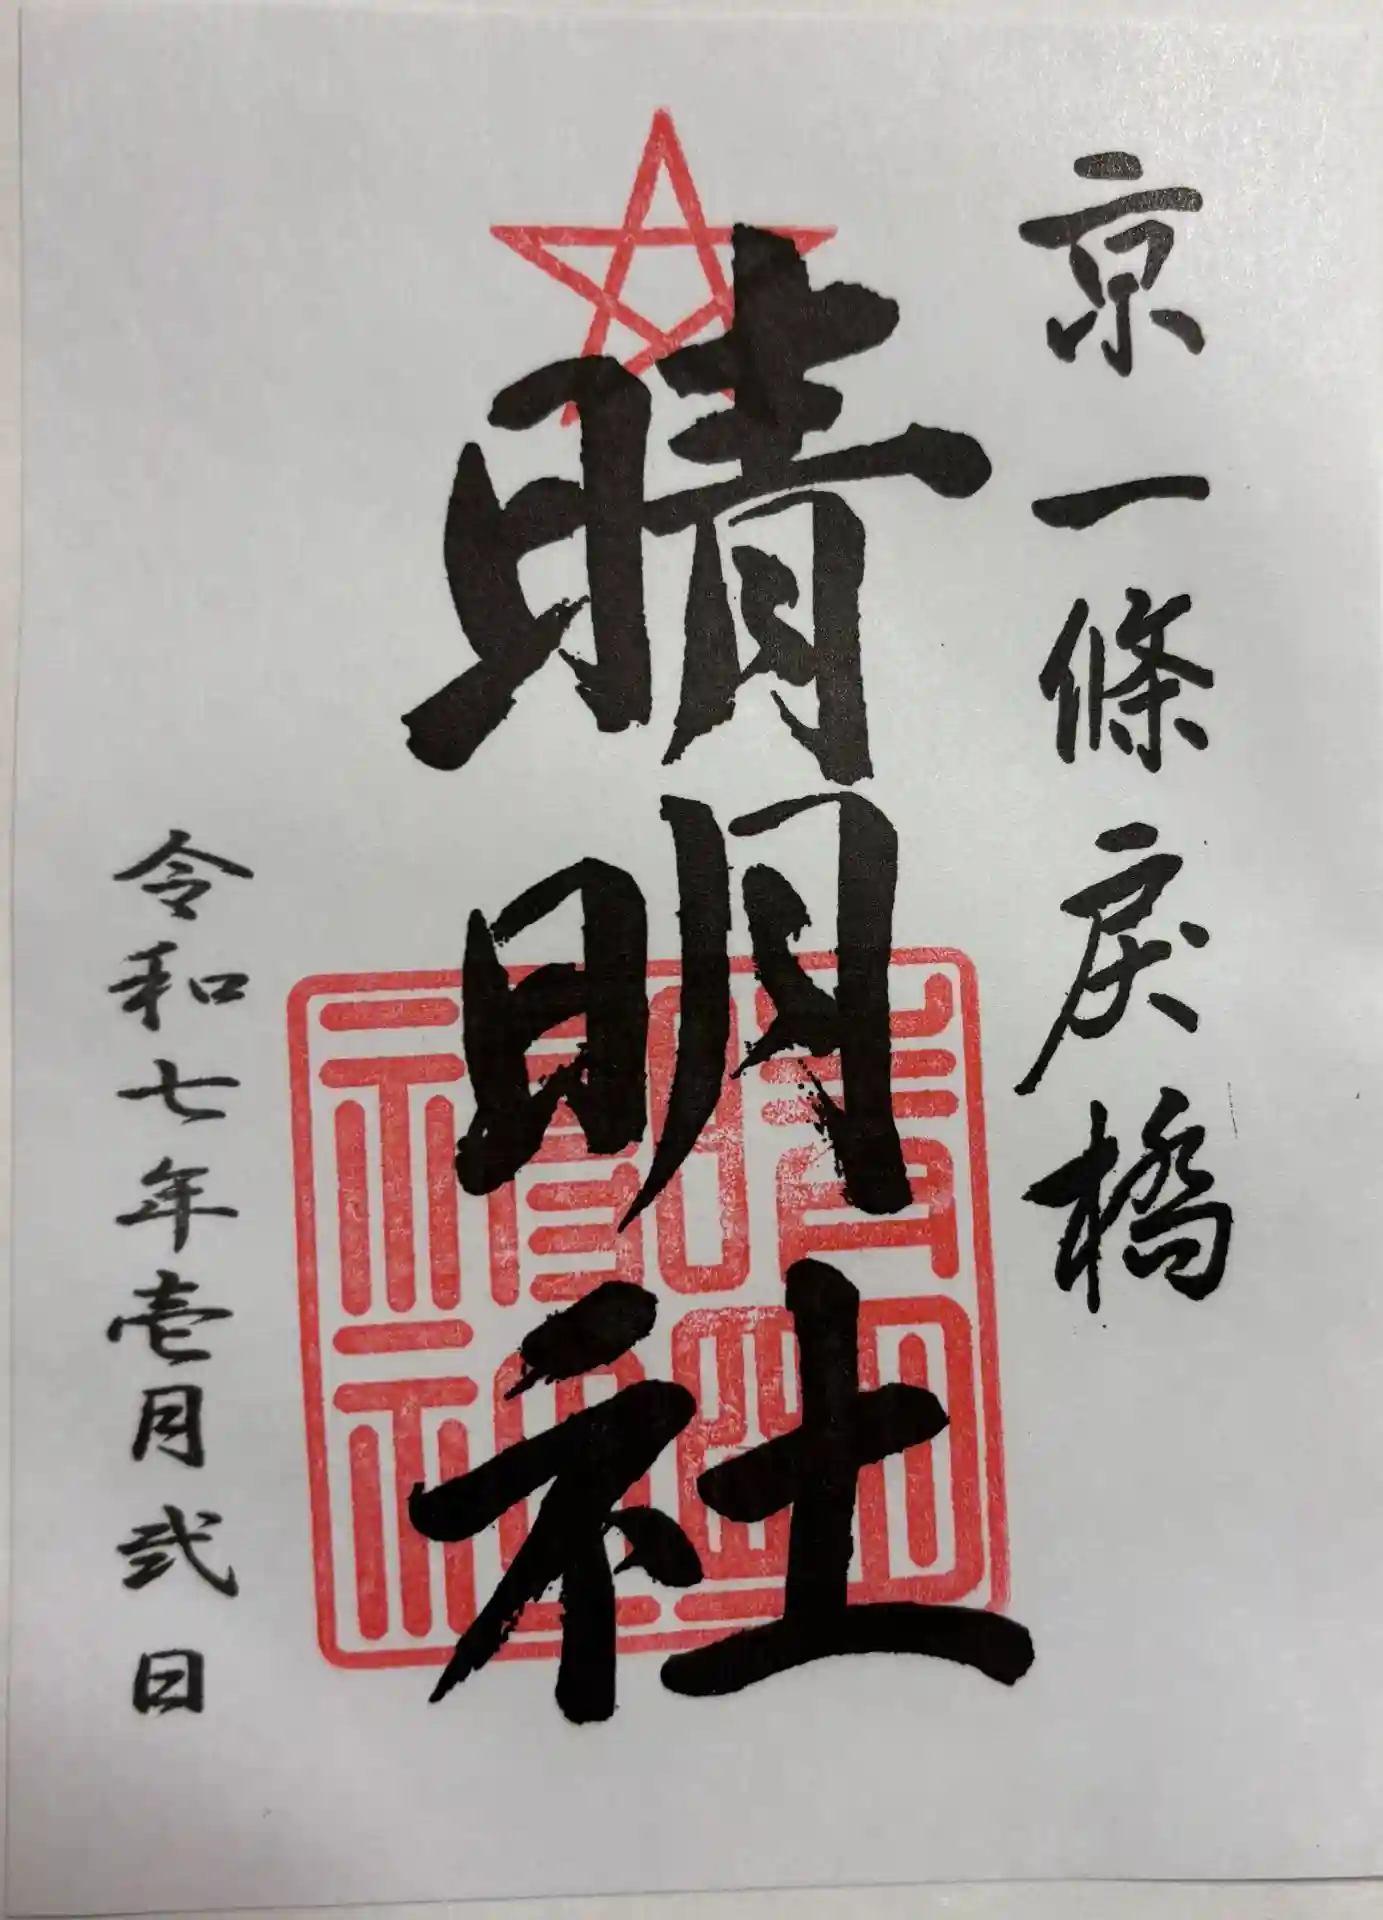 京一條戻橋
晴明社
令和七年壱月弐日